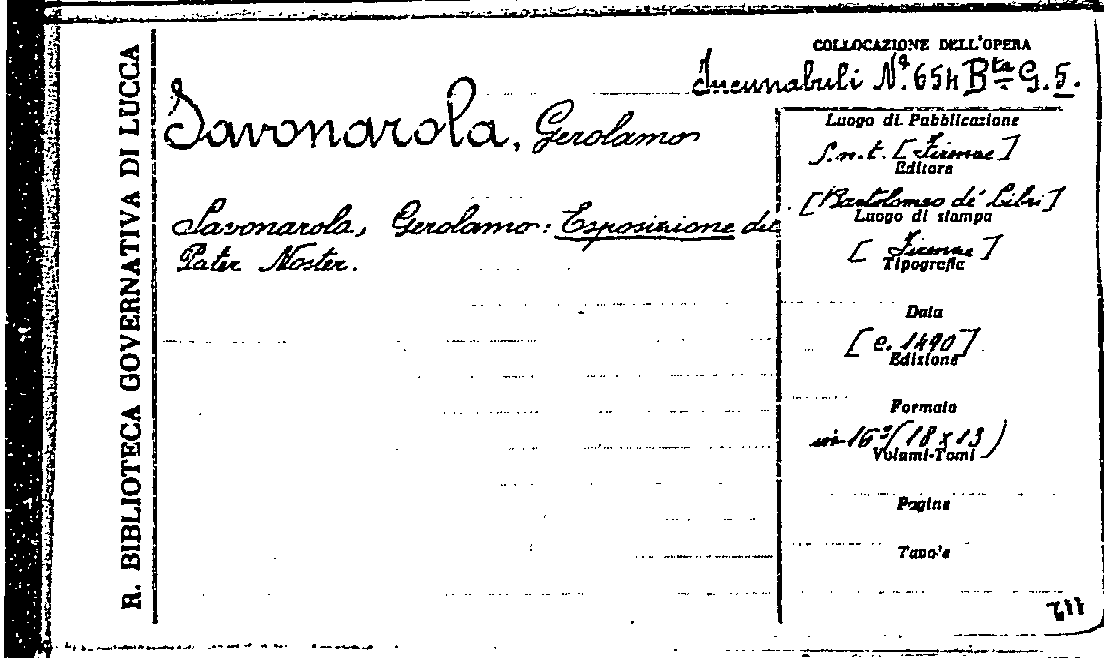 R. BIBLIOTECA GOVERNATIVA DI LUCCA
COLLOCAZIONE DELL'OPERA
Incunabuli Nº. 654 Bta G. 5.
Savonarola, Gerolamo
Savonarola, Gerolamo: Esposizione del
Pater Noster.
Luogo di Pubblicazione
S.n.t. [Firenze]
Editore
[Bartolomeo de' Libri]
Luogo di stampa
[Firenze]
Tipografia
Data
[c. 1490]
Edizione
Formato
in-16º (18 x 13)
Volumi-Tomi
Pagine
Tavole